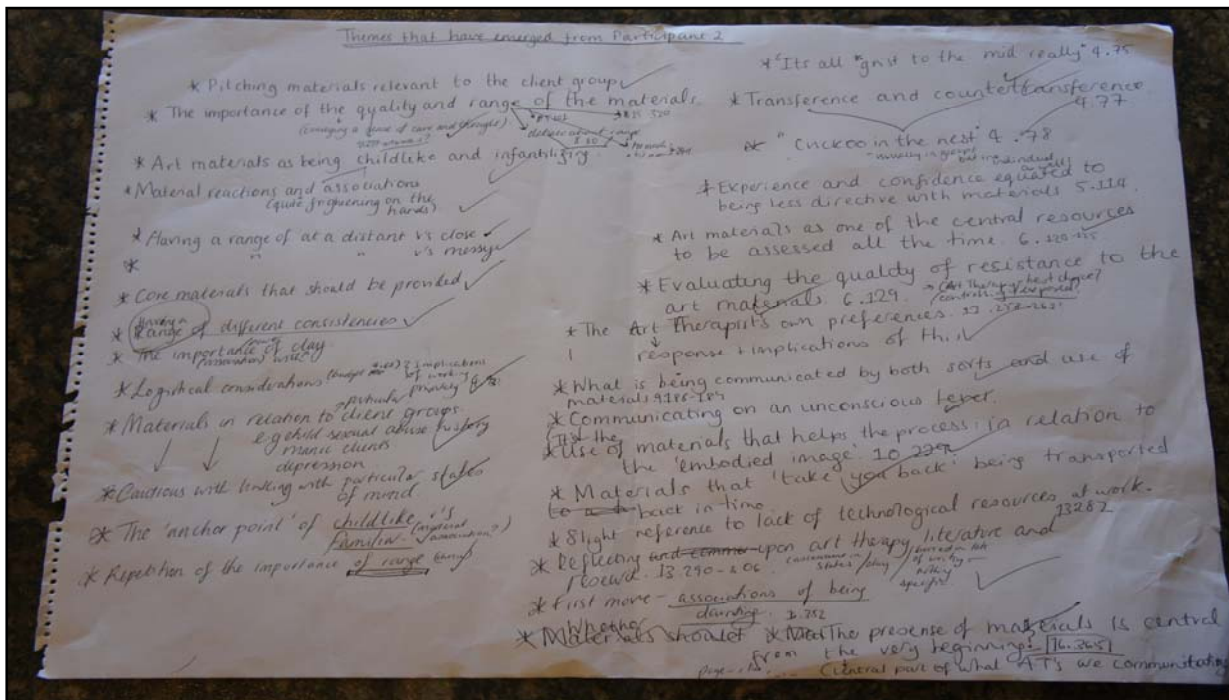 Themes that have emerged from Participant 2
* Pitching materials relevant to the client group
* The importance of the quality and range of the materials.
(conveying a sense of care and thought)
deliberate about range
* Art materials as being childlike and infantilizing
* Material reactions and associations
(quite frightening on the
hands)
* Having a range of at a distant v's close
" " v's messy
*
* Core materials that should be provided
* Having a
Range of different consistencies
* The importance of clay
(association) with
* Logistical considerations implications
of working
* Materials in relation to client groups
e.g child sexual abuse history
manic clients
depression
* Cautious with linking with particular states
of mind.
* The 'anchor point' of childlike v's
Familiar (material
association?)
* Repetition of the importance of range
* "Its all "grist to the mill really" 4.75
* Transference and countertransference
4.77
* "Cuckoo in the nest" 4.78
but individual
as well
* Experience and confidence equated to
being less directive with materials 5.114
* Art materials as one of the central resources
to be assessed all the time. 6.120-125
* Evaluating the quality of resistance to the
art materials. 6.129.
(Art Therapy best choice?
* The Art Therapist's own preferences.
response + implications of this
* What is being communicated by both sorts and use of
materials 9186-189
* Communicating on an unconscious level.
(It's the
* Use of materials that helps the process: in relation to
the 'embodied image' 10
* Materials that 'take you back' being transported
back in time
* Slight reference to lack of technological resources at work.
13282
* Reflecting and upon art therapy literature and
research. 13.290-306.
* First move - associations of being
daunting.
Whether
* Materials should * The presense of materials is central
from the very beginning! 16.365
Central part of what A.T's we communicating